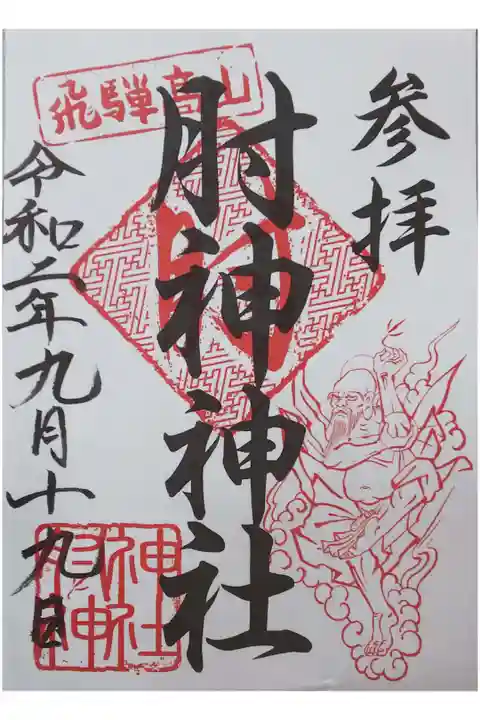 参拝
飛騨高山
肘神神社
令和二年九月十九日
肘神
神社